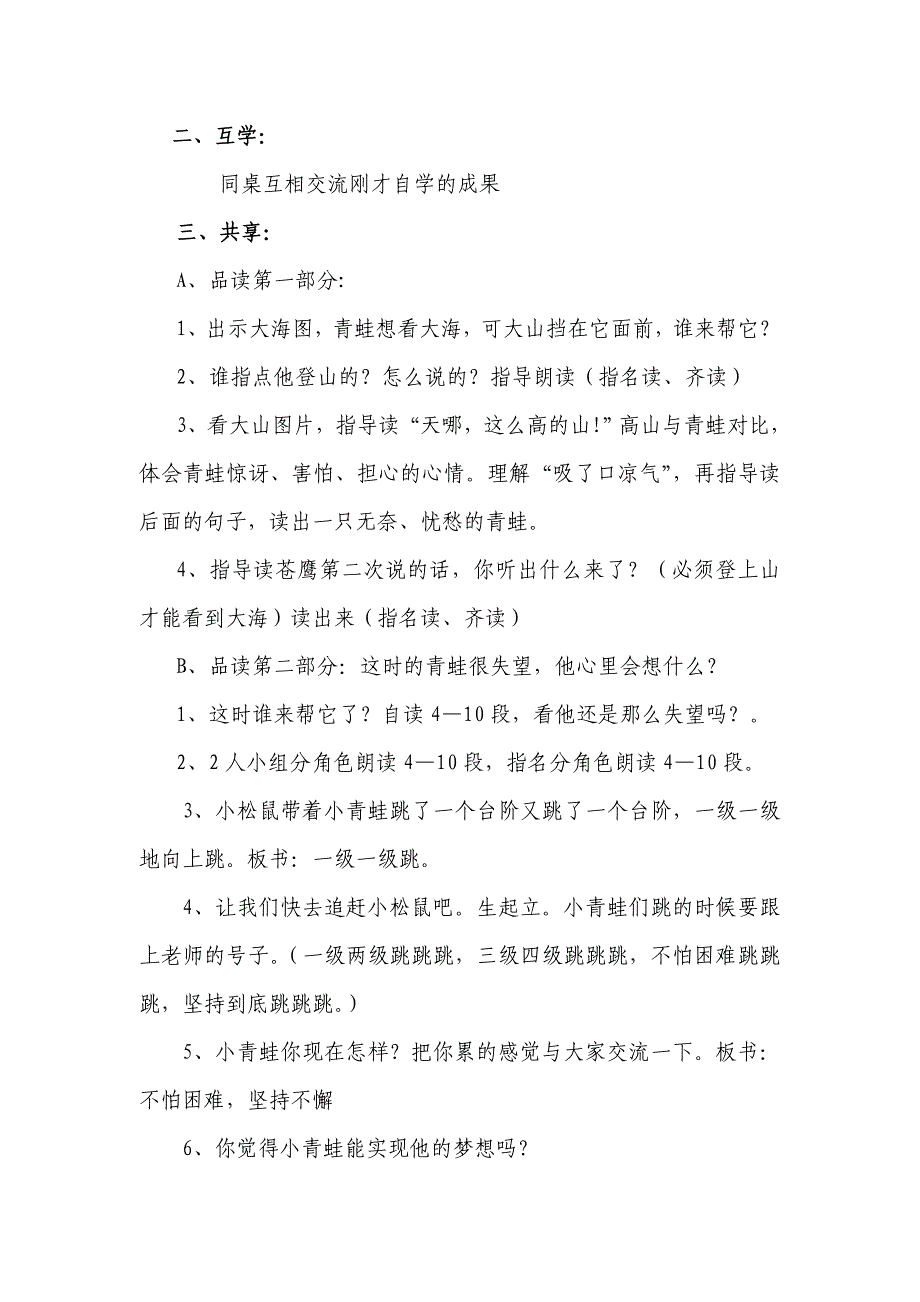 二、互学：
同桌互相交流刚才自学的成果
三、共享：
A、品读第一部分：
1、出示大海图，青蛙想看大海，可大山挡在它面前，谁来帮它？
2、谁指点他登山的？怎么说的？指导朗读（指名读、齐读）
3、看大山图片，指导读“天哪，这么高的山！”高山与青蛙对比，
体会青蛙惊讶、害怕、担心的心情。理解“吸了口凉气”，再指导读
后面的句子，读出一只无奈、忧愁的青蛙。
4、指导读苍鹰第二次说的话，你听出什么来了？（必须登上山
才能看到大海）读出来（指名读、齐读）
B、品读第二部分：这时的青蛙很失望，他心里会想什么？
1、这时谁来帮它了？自读 4—10 段，看他还是那么失望吗？。
2、2 人小组分角色朗读 4—10 段，指名分角色朗读 4—10 段。
3、小松鼠带着小青蛙跳了一个台阶又跳了一个台阶，一级一级
地向上跳。板书：一级一级跳。
4、让我们快去追赶小松鼠吧。生起立。小青蛙们跳的时候要跟
上老师的号子。（一级两级跳跳跳，三级四级跳跳跳，不怕困难跳跳
跳，坚持到底跳跳跳。）
5、小青蛙你现在怎样？把你累的感觉与大家交流一下。板书：
不怕困难，坚持不懈
6、你觉得小青蛙能实现他的梦想吗？